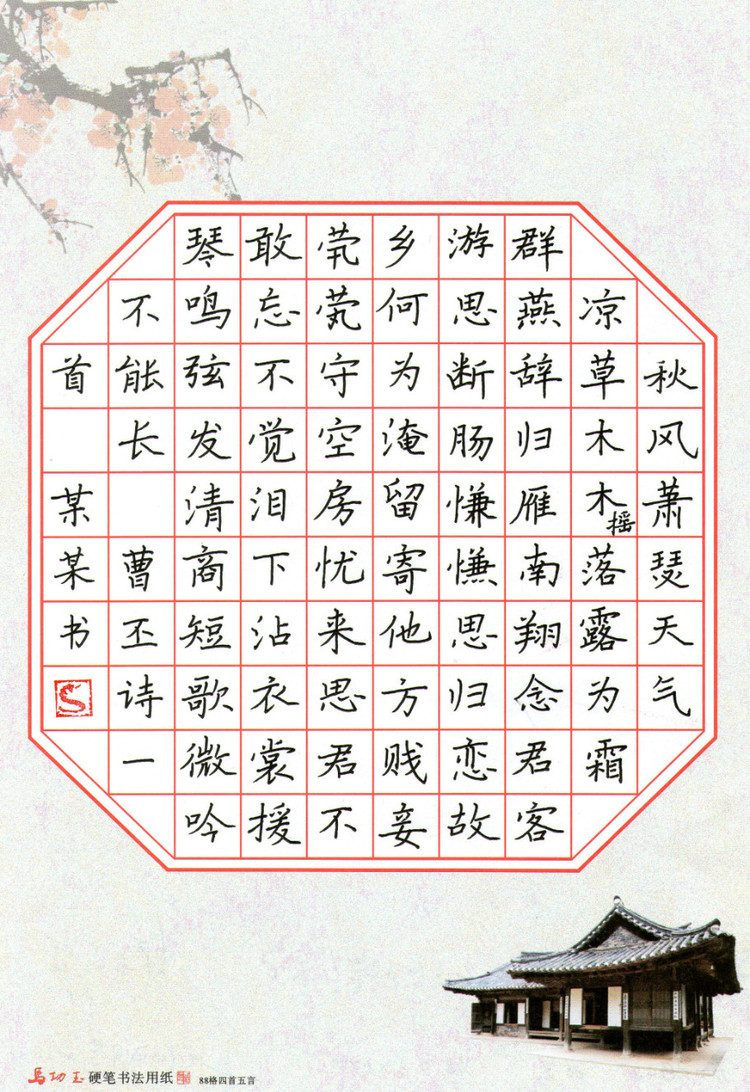 秋风萧瑟天气
凉草木木摇落露为霜
群燕辞归雁南翔念君客
游思断肠慊慊思归恋故
乡何为淹留寄他方贱妾
茕茕守空房忧来思君不
敢忘不觉泪下沾衣裳援
琴鸣弦发清商短歌微吟
不能长 曹丕诗一
首 某某书
馬功玉硬笔书法用纸 88格四首五言